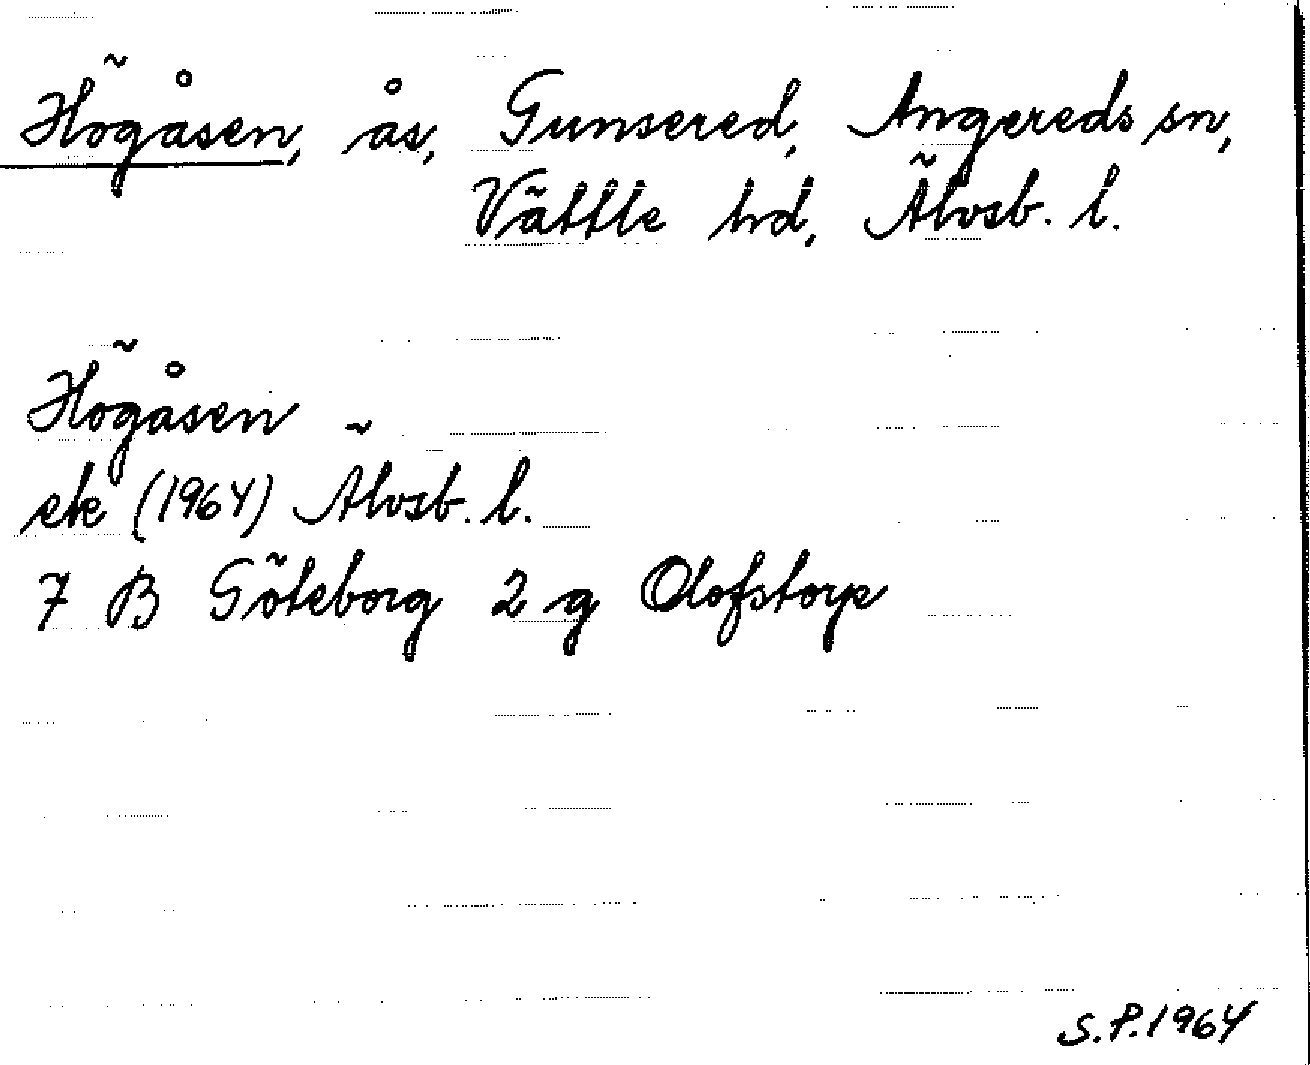 Högåsen, ås, Gunsered, Angereds sn,
Vättle hd, Älvsb. l.
Högåsen
ek (1964) Älvsb. l.
7 B Göteborg 2 g Olofstorp
S.P. 1964